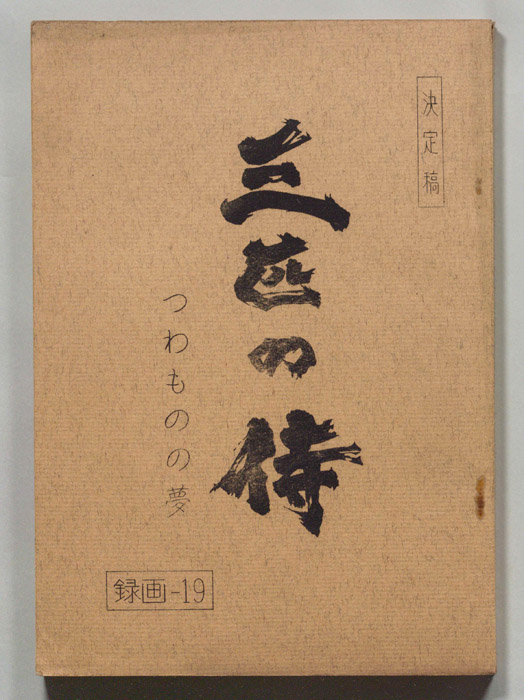 決定稿
三匹の侍
つわものの夢
録画-19